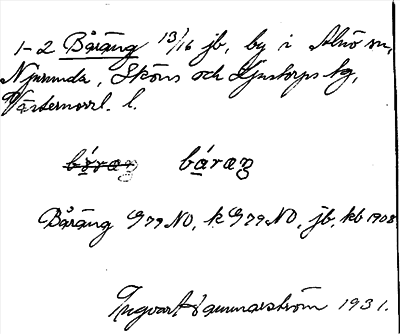 1-2 Båräng 13/16 jb, by i Alnö sn,
Njurunda, Sköns och Ljustorps tg,
Västernorrl. l.
báræŋ
Båräng G79 NO, k G79 NO, jb, kb 1908
Ingvar Hammarström 1931.